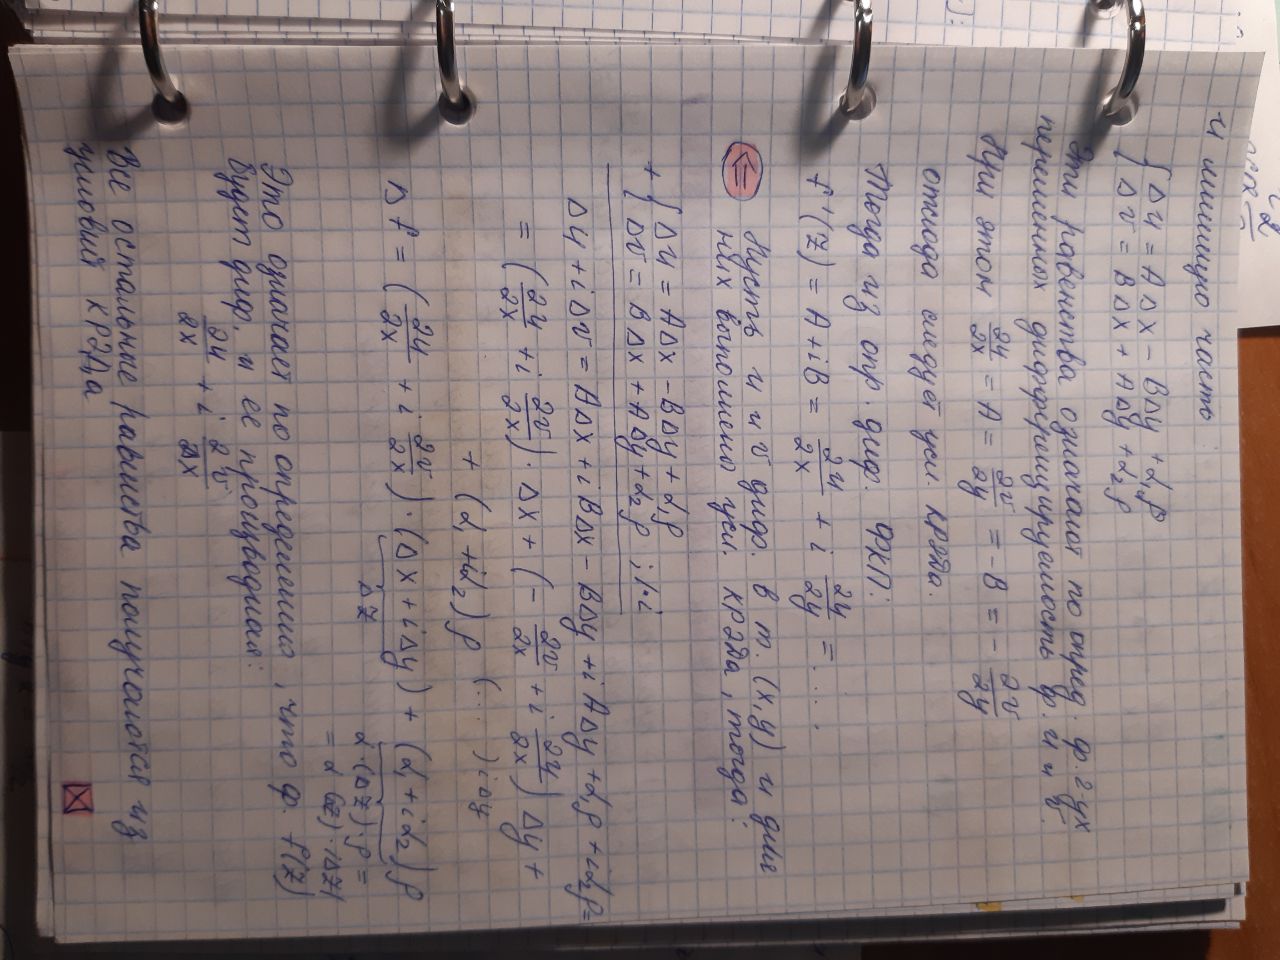 и мнимую часть:
{ Δu = AΔx - BΔy + α₁ρ
{ Δv = BΔx + AΔy + α₂ρ
Эти равенства означают по опред. ф. 2-ух
переменных дифференцируемость ф. u и v.
При этом ∂u/∂x = A = ∂v/∂y = -B = - ∂v/∂y
откуда следует усл КРЭДа.
Тогда из опр. диф. ФКП:
f'(z) = A + iB = ∂u/∂x + i ∂u/∂y = ....
⇐ Пусть u и v диф. в т. (x,y) и для
них выполнено усл. КРЭДа, тогда:
+ { Δu = AΔx - BΔy + α₁ρ
{ Δv = BΔx + AΔy + α₂ρ |·i
Δu + iΔv = AΔx + iBΔx - BΔy + iAΔy + α₁ρ + iα₂ρ =
= (∂u/∂x + i ∂v/∂x) · Δx + (- ∂v/∂x + i ∂u/∂x) Δy +
+ (α₁ + iα₂)ρ (....) iΔy
Δf = (∂u/∂x + i ∂v/∂x) · (Δx + iΔy) + (α₁ + iα₂)ρ
Δz
α(Δz)·ρ =
= α(Δz)·|Δz|
Это означает по определению, что ф. f(z)
будет диф. и её производная:
∂u/∂x + i ∂v/∂x
Все остальные равенства получаются из
условий КРЭДа